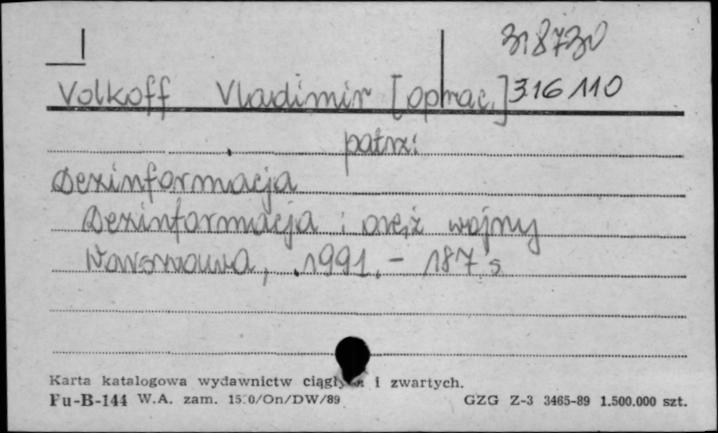 318730
Volkoff Vladimir [oprac.] 316 110
patrz:
Dezinformacja
Dezinformacja : oręż wojny
Warszawa, 1991. - 187 s
Karta katalogowa wydawnictw ciągłych i zwartych.
Pu-B-144 W.A. zam. 15.0/On/DW/89 GZG Z-3 3465-89 1.500.000 szt.